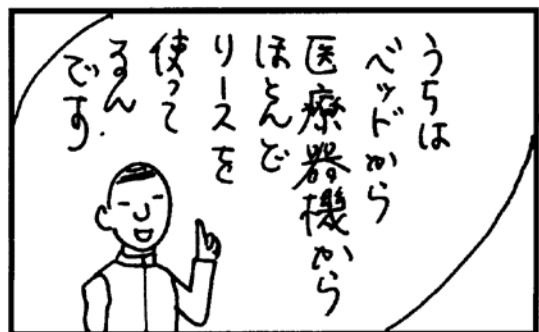 うちは
ベッドから
医療器機から
ほとんど
リースを
使って
るん
です.